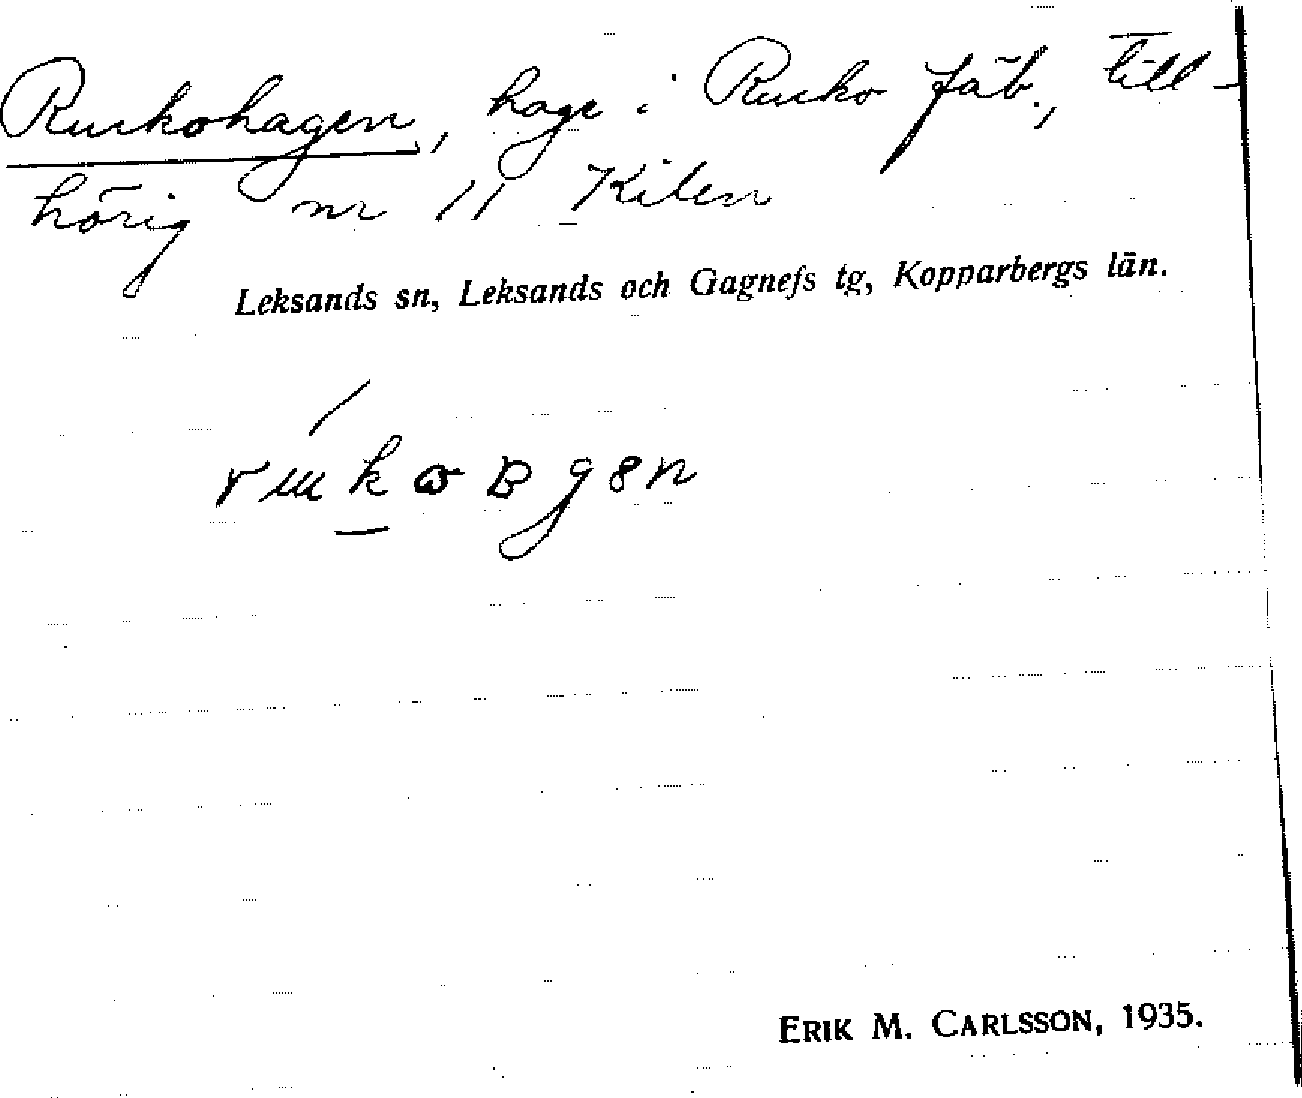 Ruckohagen, hage i Rucko fäb., till-
hörig nr 11 Kilen
Leksands sn, Leksands och Gagnefs tg, Kopparbergs län.
ERIK M. CARLSSON, 1935.